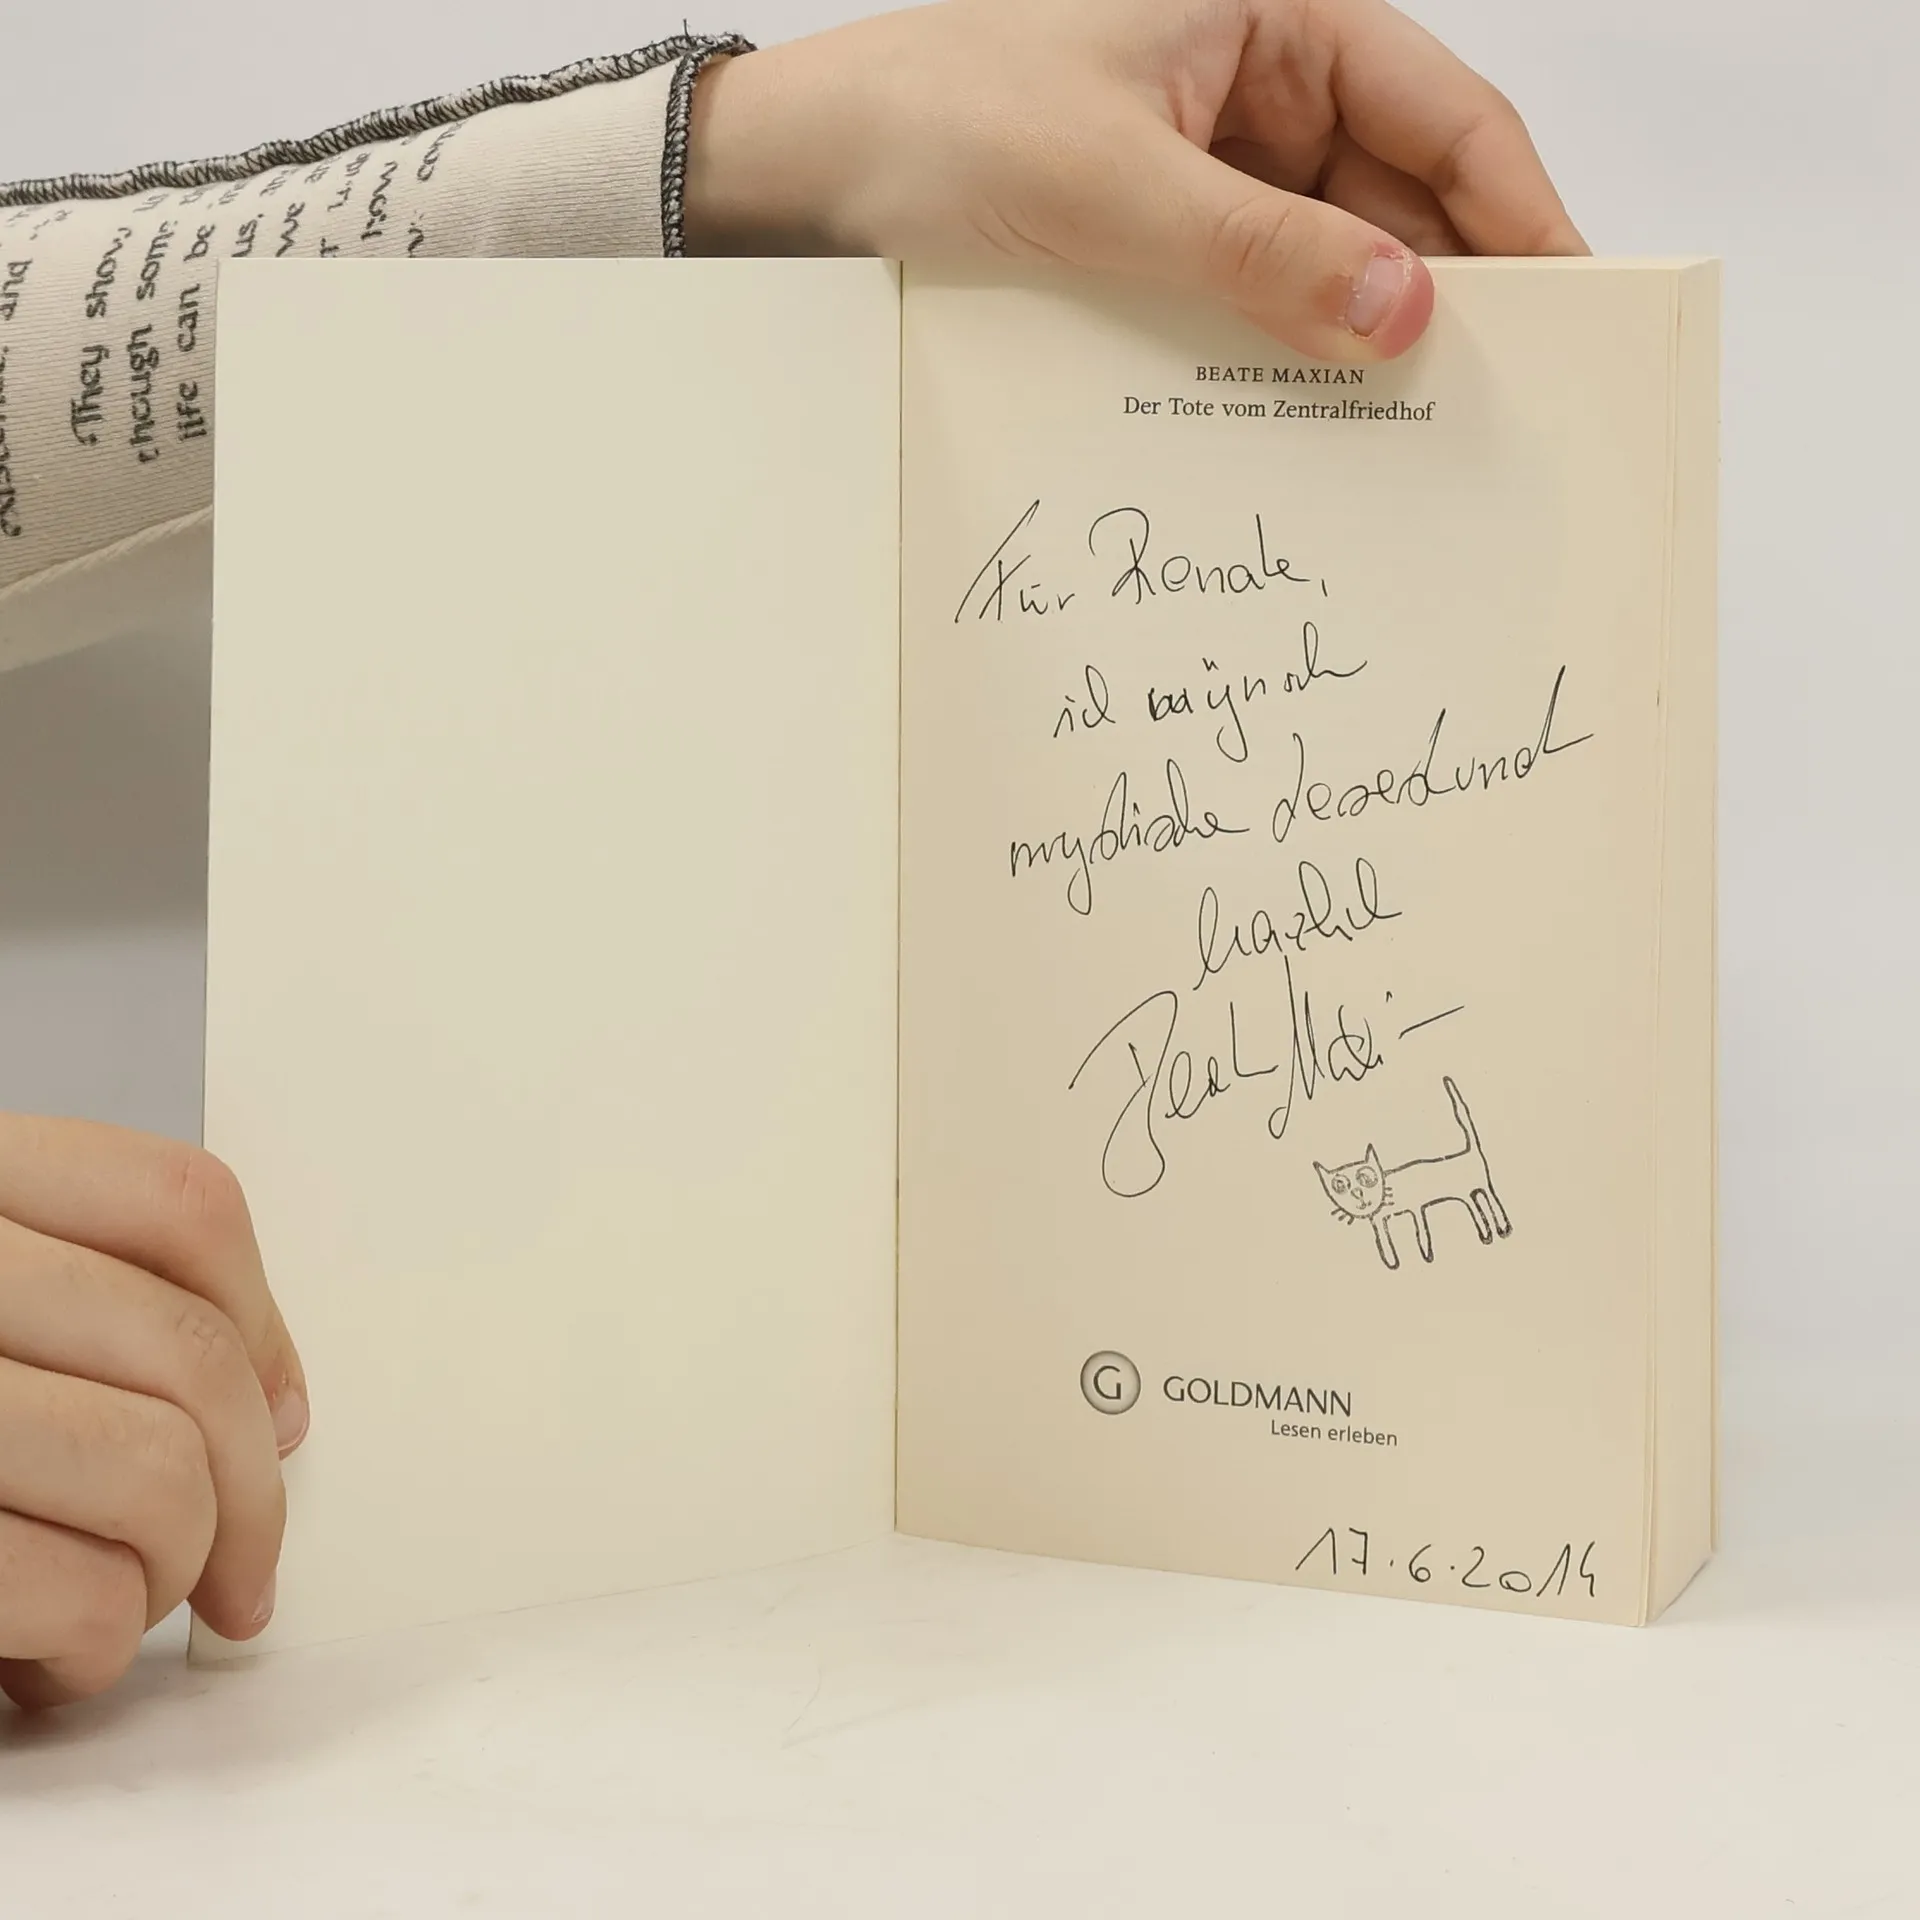 They show
though some
life can be
us,
we
how
BEATE MAXIAN
Der Tote vom Zentralfriedhof
Für Renate,
ich wünsch
mystische Lesestund
herzlich
Beate Maxian
G GOLDMANN
Lesen erleben
17.6.2014